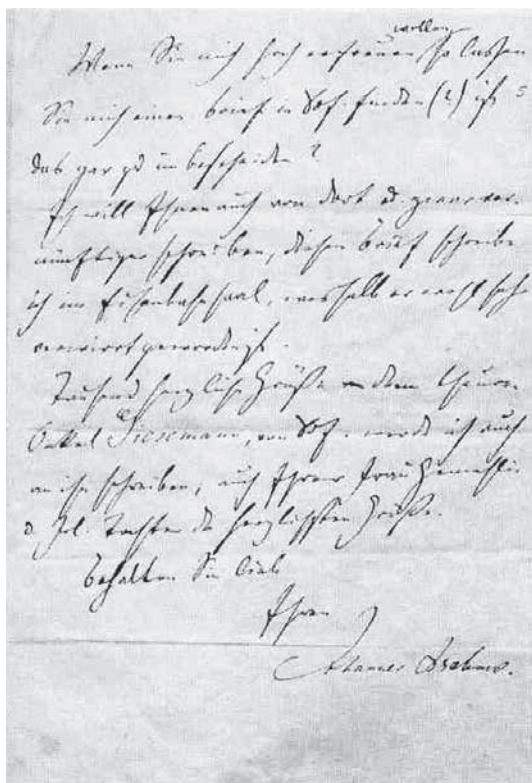 wollen
Wenn Sie mich hoch erfreuen so lassen
Sie mich einen Brief in finden (?) ist
das gar zu unbescheiden?
Ich will Ihnen auch von dort u. ver-
nünftiger schreiben, diesen Brief schreibe
ich im Eisenbahnsaal, weshalb er wohl sehr
verwirrt geworden ist.
Tausend herzliche Grüße an den
Onkel Giesemann, von werde ich auch
an ihn schreiben, auch Ihrer Frau Gemahlin
u. Frl. Tochter die herzlichsten Grüße.
Behalten Sie lieb
Ihren
Johannes Brahms.